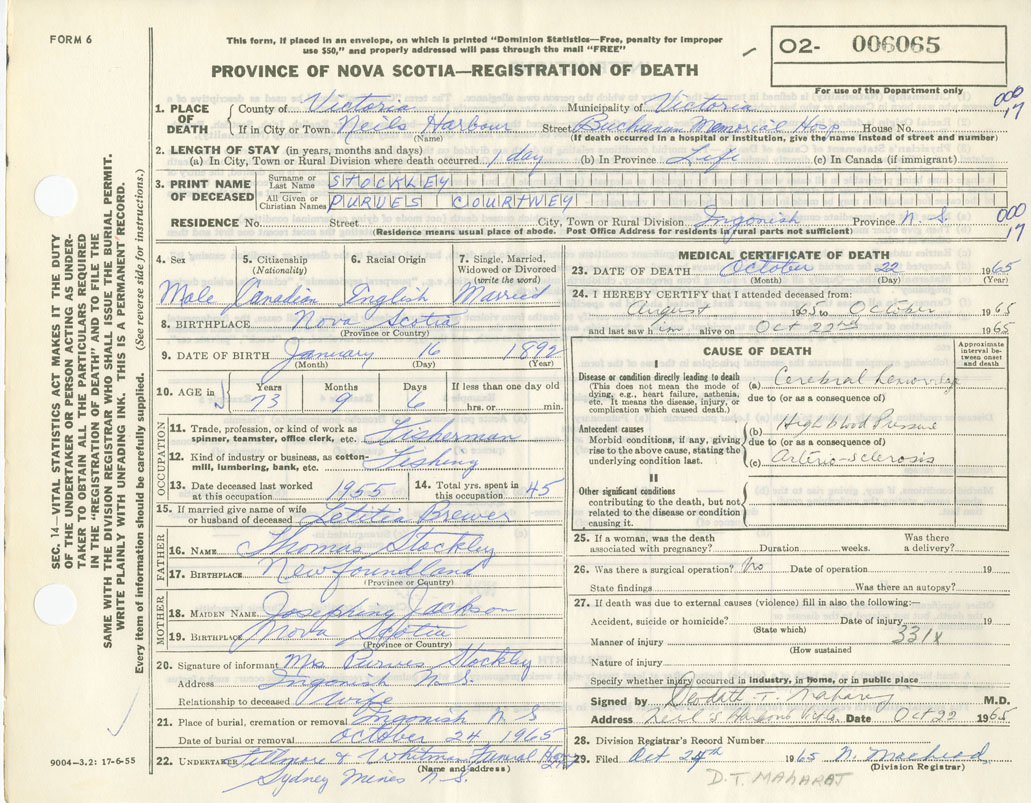 FORM 6
This form, if placed in an envelope, on which is printed "Dominion Statistics—Free, penalty for improper
use $50," and properly addressed will pass through the mail "FREE"
PROVINCE OF NOVA SCOTIA—REGISTRATION OF DEATH
O2- 006065
For use of the Department only
000
17
1. PLACE OF DEATH
County of Victoria Municipality of Victoria
If in City or Town Neils Harbour Street Buchanan Memorial Hosp House No.
(Name) (If death occurred in a hospital or institution, give the name instead of street and number)
2. LENGTH OF STAY (in years, months and days)
(a) In City, Town or Rural Division where death occurred 1 day (b) In Province Life (c) In Canada (if immigrant)
3. PRINT NAME OF DECEASED
Surname or Last Name STOCKLEY
All Given or Christian Names PURVES COURTNEY
RESIDENCE No. Street City, Town or Rural Division Ingonish Province N.S.
(Residence means usual place of abode. Post Office Address for residents in rural parts not sufficient)
000
17
4. Sex 5. Citizenship (Nationality) 6. Racial Origin 7. Single, Married, Widowed or Divorced (write the word)
Male Canadian English Married
8. BIRTHPLACE Nova Scotia
(Province or Country)
9. DATE OF BIRTH January 16 1892
(Month) (Day) (Year)
10. AGE in Years Months Days If less than one day old
73 9 6 hrs. or min.
OCCUPATION
11. Trade, profession, or kind of work as spinner, teamster, office clerk, etc. Fisherman
12. Kind of industry or business, as cotton-mill, lumbering, bank, etc. Fishing
13. Date deceased last worked at this occupation 1955 14. Total yrs. spent in this occupation 45
15. If married give name of wife or husband of deceased Letitia Brewer
FATHER
16. NAME Thomas Stockley
17. BIRTHPLACE Newfoundland
(Province or Country)
MOTHER
18. MAIDEN NAME Josephine Jackson
19. BIRTHPLACE Nova Scotia
(Province or Country)
20. Signature of informant Mrs Purves Stockley
Address Ingonish N.S.
Relationship to deceased Wife
21. Place of burial, cremation or removal Ingonish N S
Date of burial or removal October 24, 1965
22. UNDERTAKER Fillmore & Whitman Funeral Home
(Name and address)
Sydney Mines N.S.
MEDICAL CERTIFICATE OF DEATH
23. DATE OF DEATH October 22 1965
(Month) (Day) (Year)
24. I HEREBY CERTIFY that I attended deceased from:
August 1965 to October 1965
and last saw him alive on Oct 22nd 1965
CAUSE OF DEATH
Approximate interval between onset and death
I
Disease or condition directly leading to death
(This does not mean the mode of dying, e.g., heart failure, asthenia, etc. It means the disease, injury, or complication which caused death.)
(a) Cerebral hemorrhage
due to (or as a consequence of)
Antecedent causes
Morbid conditions, if any, giving rise to the above cause, stating the underlying condition last.
(b) High blood Pressure
due to (or as a consequence of)
(c) Arterio-sclerosis
II
Other significant conditions
contributing to the death, but not related to the disease or condition causing it.
25. If a woman, was the death associated with pregnancy? Duration weeks. Was there a delivery?
26. Was there a surgical operation? No Date of operation 19
State findings Was there an autopsy?
27. If death was due to external causes (violence) fill in also the following:—
Accident, suicide or homicide? Date of injury 19
(State which)
331X
Manner of injury
(How sustained
Nature of injury
Specify whether injury occurred in industry, in home, or in public place
Signed by Deodath T. Maharaj M.D.
Address Neil's Harbour N.S. Date Oct 22 1965
28. Division Registrar's Record Number
29. Filed Oct 24th 1965
(Division Registrar)
D.T. MAHARAJ
SEC. 14—VITAL STATISTICS ACT MAKES IT THE DUTY
OF THE UNDERTAKER OR PERSON ACTING AS UNDER-
TAKER TO OBTAIN ALL THE PARTICULARS REQUIRED
IN THE "REGISTRATION OF DEATH" AND TO FILE THE
SAME WITH THE DIVISION REGISTRAR WHO SHALL ISSUE THE BURIAL PERMIT.
WRITE PLAINLY WITH UNFADING INK. THIS IS A PERMANENT RECORD.
Every item of information should be carefully supplied. (See reverse side for instructions.)
9004—3.2: 17-6-55